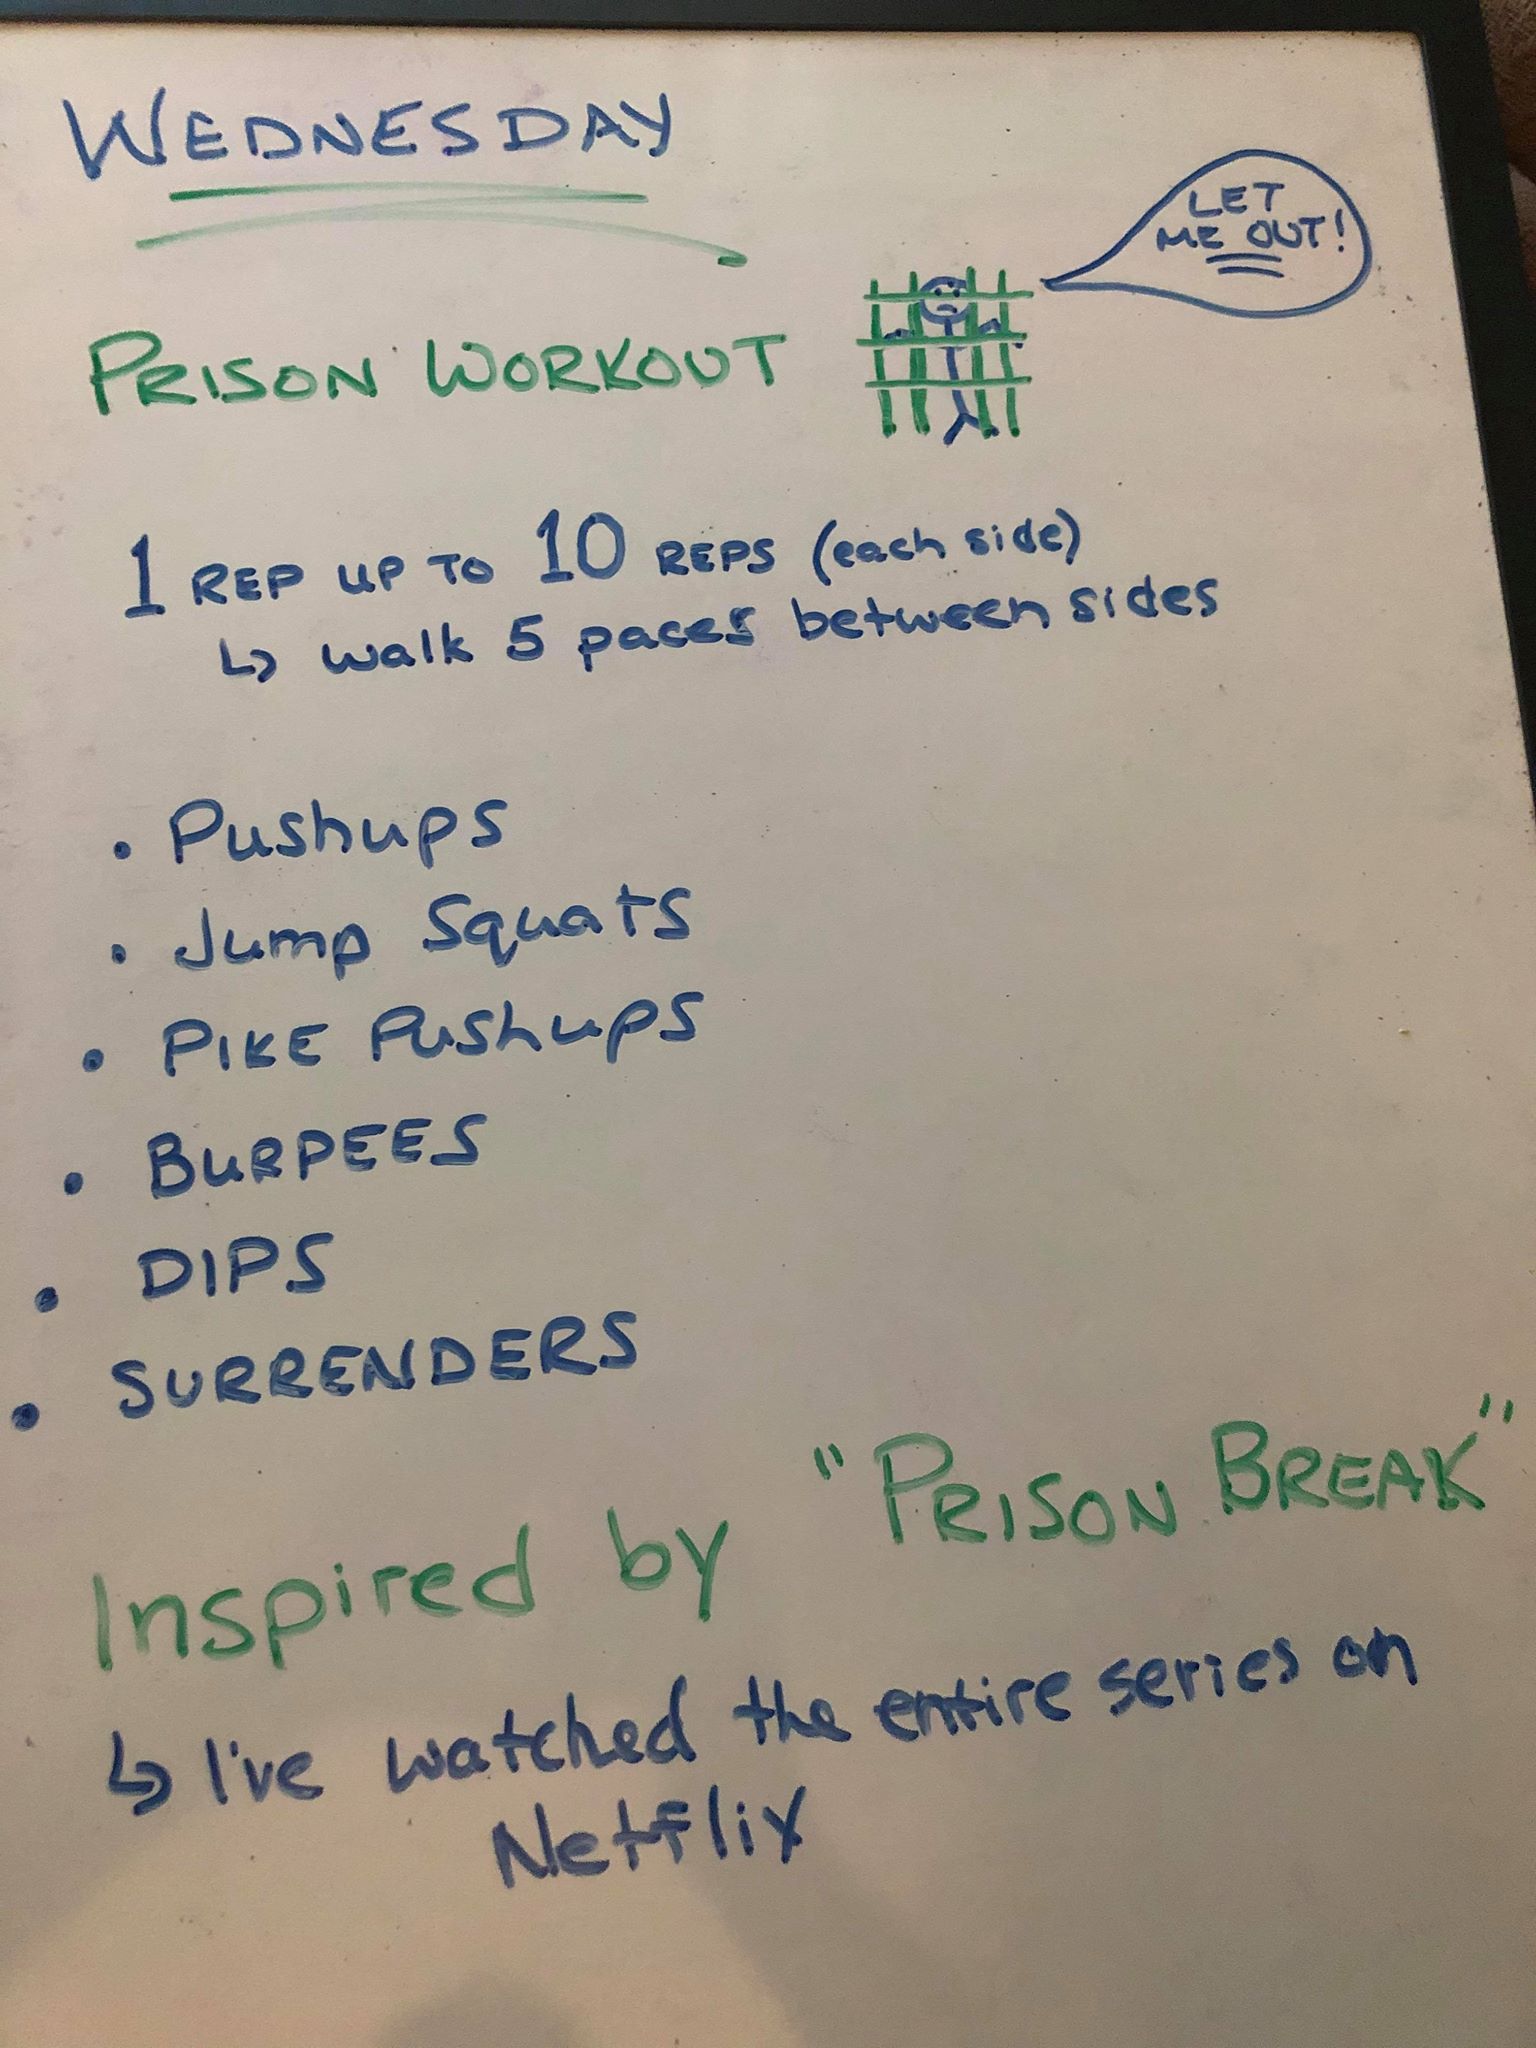 WEDNESDAY
LET
ME OUT!
PRISON WORKOUT
1 REP UP TO 10 REPS (each side)
↳ walk 5 paces between sides
• Pushups
• Jump Squats
• PIKE Pushups
• BURPEES
• DIPS
• SURRENDERS
Inspired by "PRISON BREAK"
↳ I've watched the entire series on
Netflix